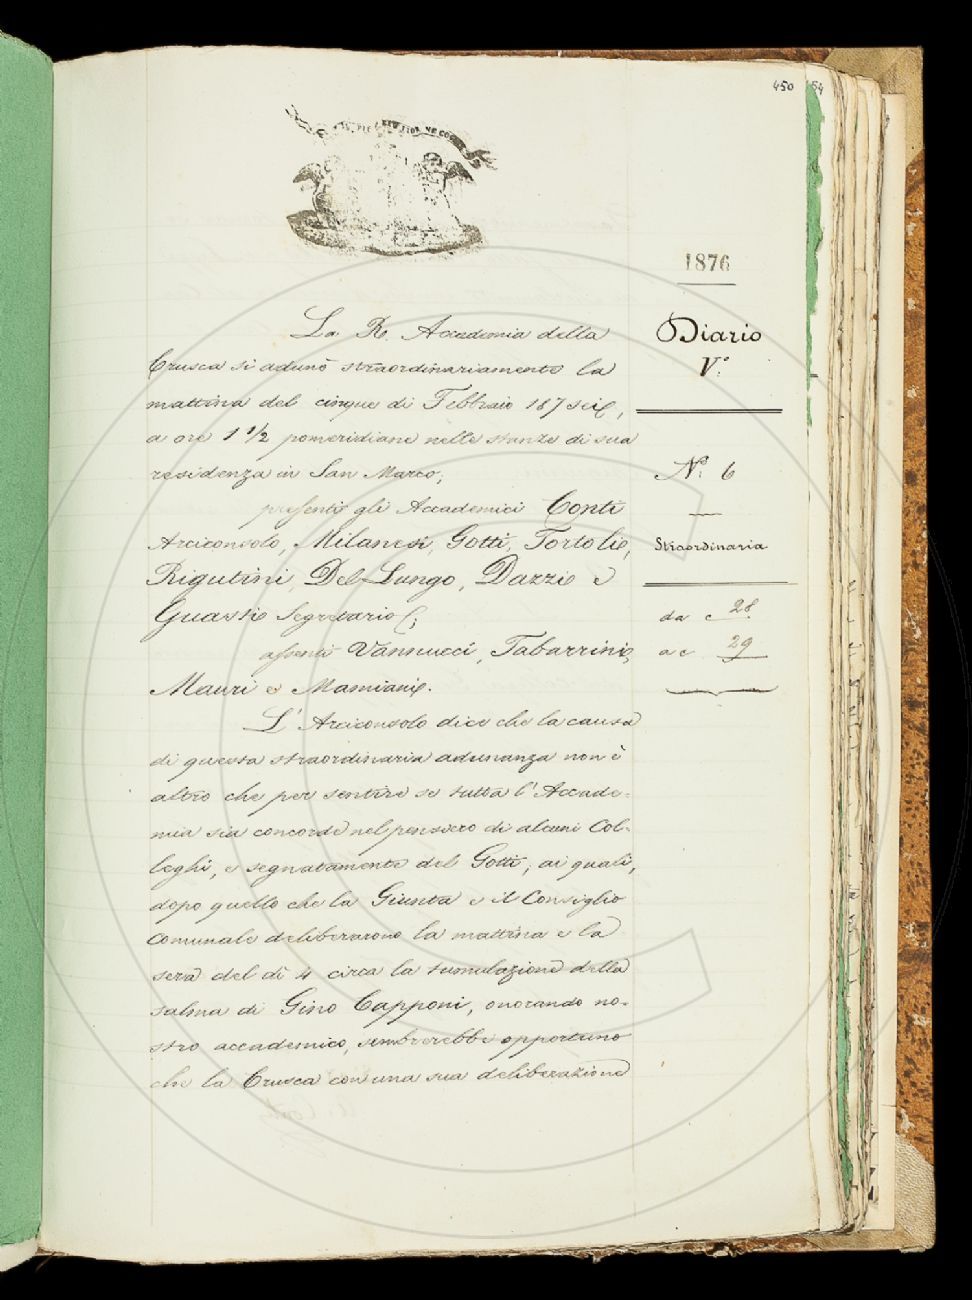 450
54
IL PIÙ BEL FIOR NE COGLIE
1876
Diario
V.°
N.° 6
Straordinaria
da c 28
a c 29
La R. Accademia della
Crusca si adunò straordinariamente la
mattina del cinque di Febbraio 187sei,
a ore 1 1/2 pomeridiane nelle stanze di sua
residenza in San Marco;
presenti gli Accademici Conti
Arciconsolo, Milanesi, Gotti, Tortoli,
Rigutini, Del Lungo, Dazzi e
Guasti Segretario;
assenti Vannucci, Tabarrini,
Mauri e Mamiani.
L' Arciconsolo dice che la causa
di questa straordinaria adunanza non è
altro che per sentire se tutta l'Accade-
mia sia concorde nel pensiero di alcuni Col-
leghi, e segnatamente del Gotti, ai quali,
dopo quello che la Giunta e il Consiglio
Comunale deliberarono la mattina e la
sera del dì 4 circa la tumulazione della
salma di Gino Capponi, onorando no-
stro accademico, sembrerebbe opportuno
che la Crusca con una sua deliberazione